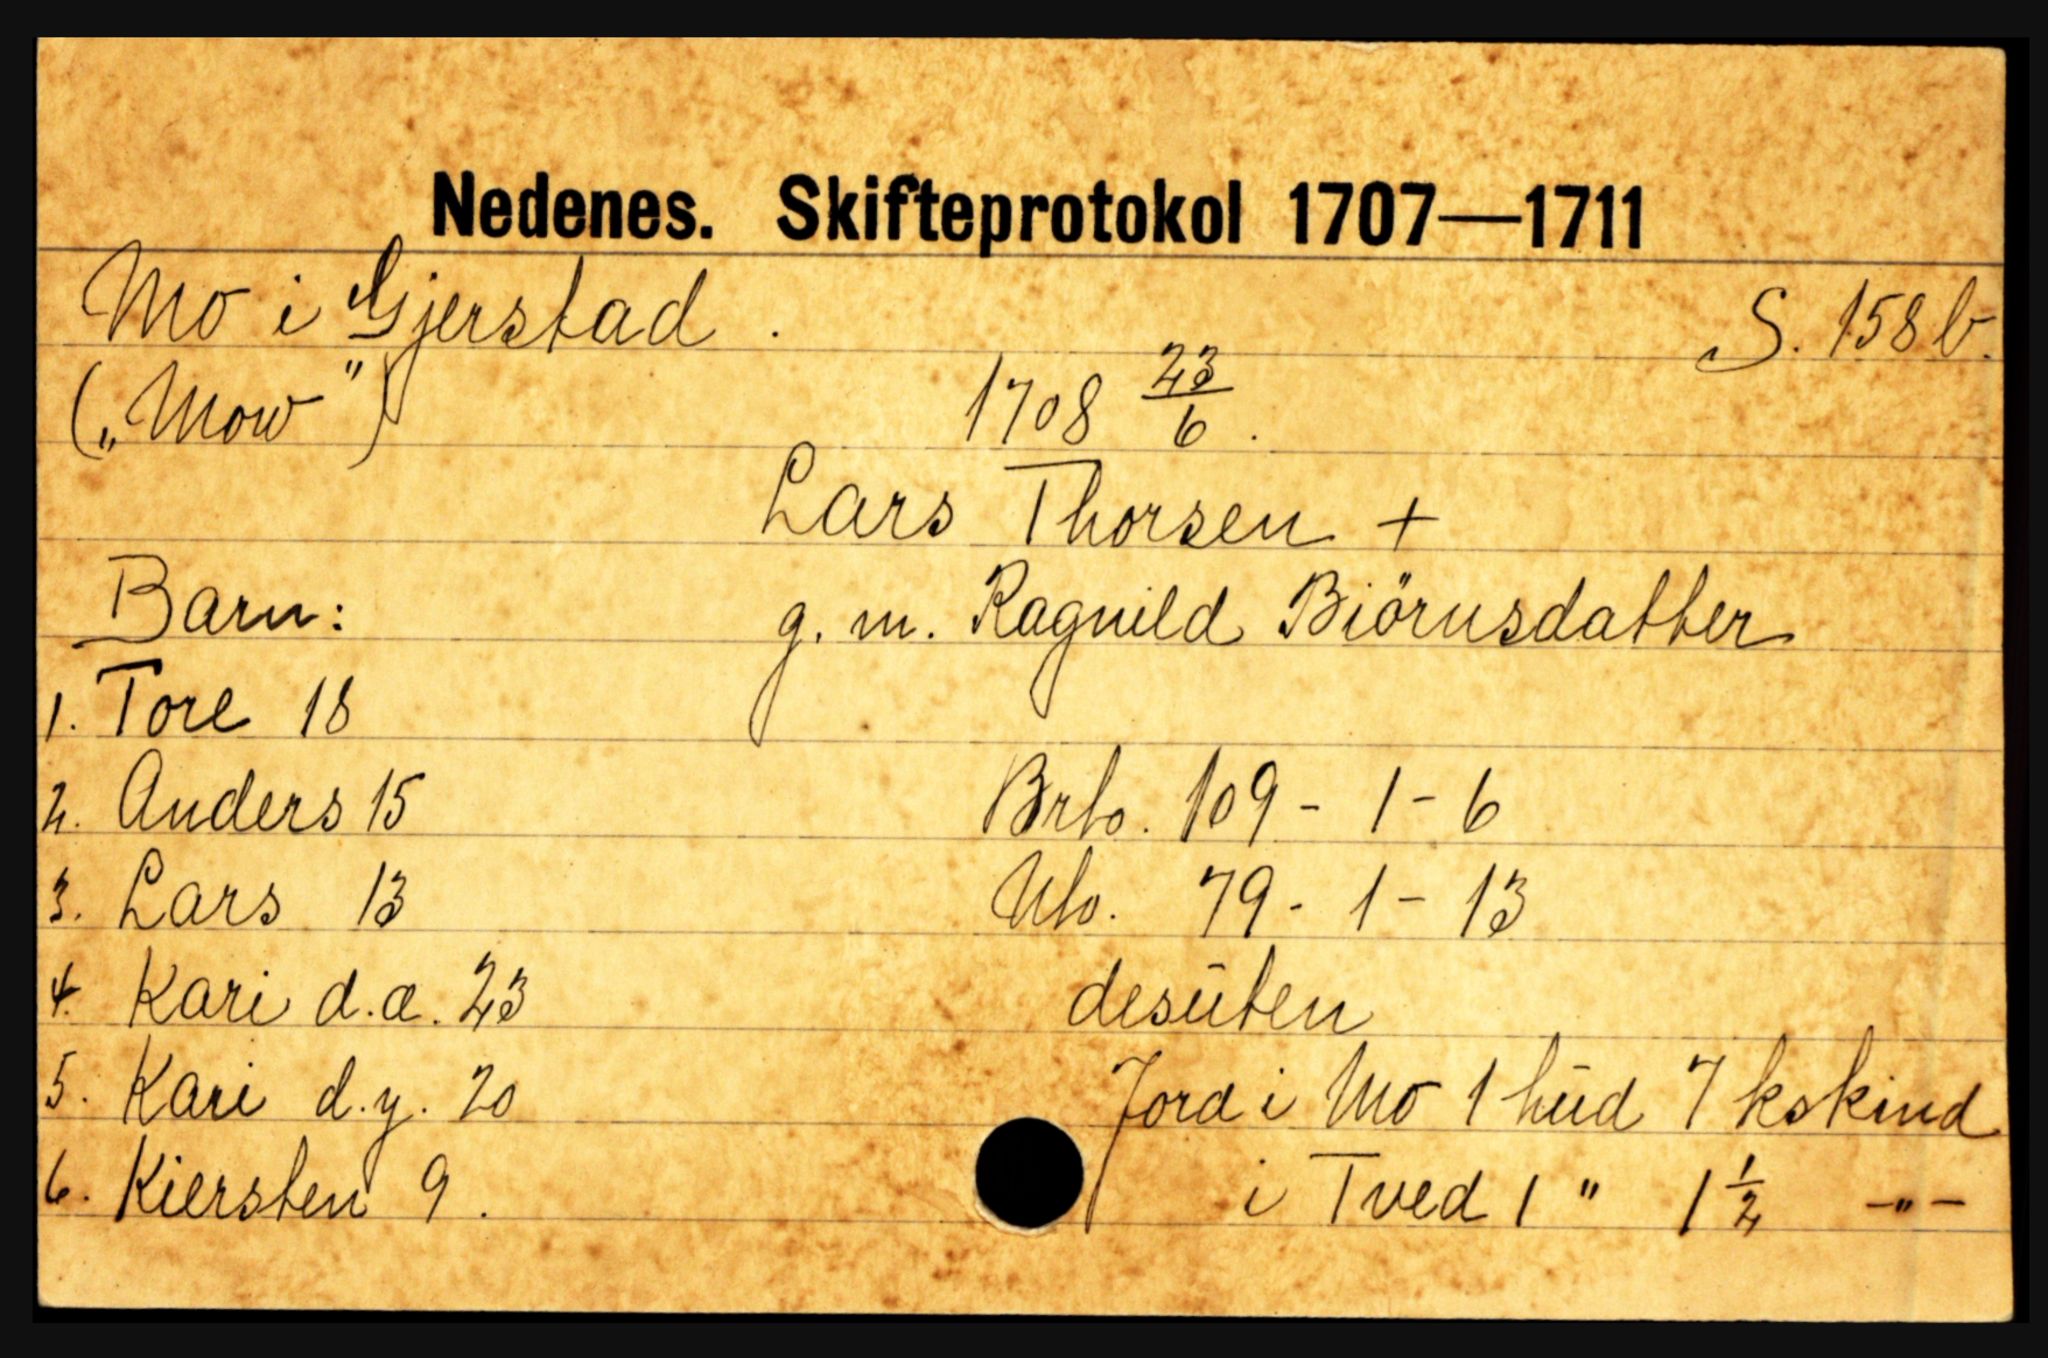 Nedenes. Skifteprotokol 1707—1711
Mo i Gjerstad. S. 158 b.
(„Mow") 1708 23/6.
Lars Thorsen +
Barn: g. m. Ragnild Biörnsdatter
1. Tore 18
2. Anders 15 Brto. 109 - 1 - 6
3. Lars 13 Nto. 79 - 1 - 13
4. Kari d.æ. 23 desūten
5. Kari d.y. 20 Jord i Mo 1 hūd 7 kskind
6. Kiersten 9. i Tved 1 " 1 1/2 -"-